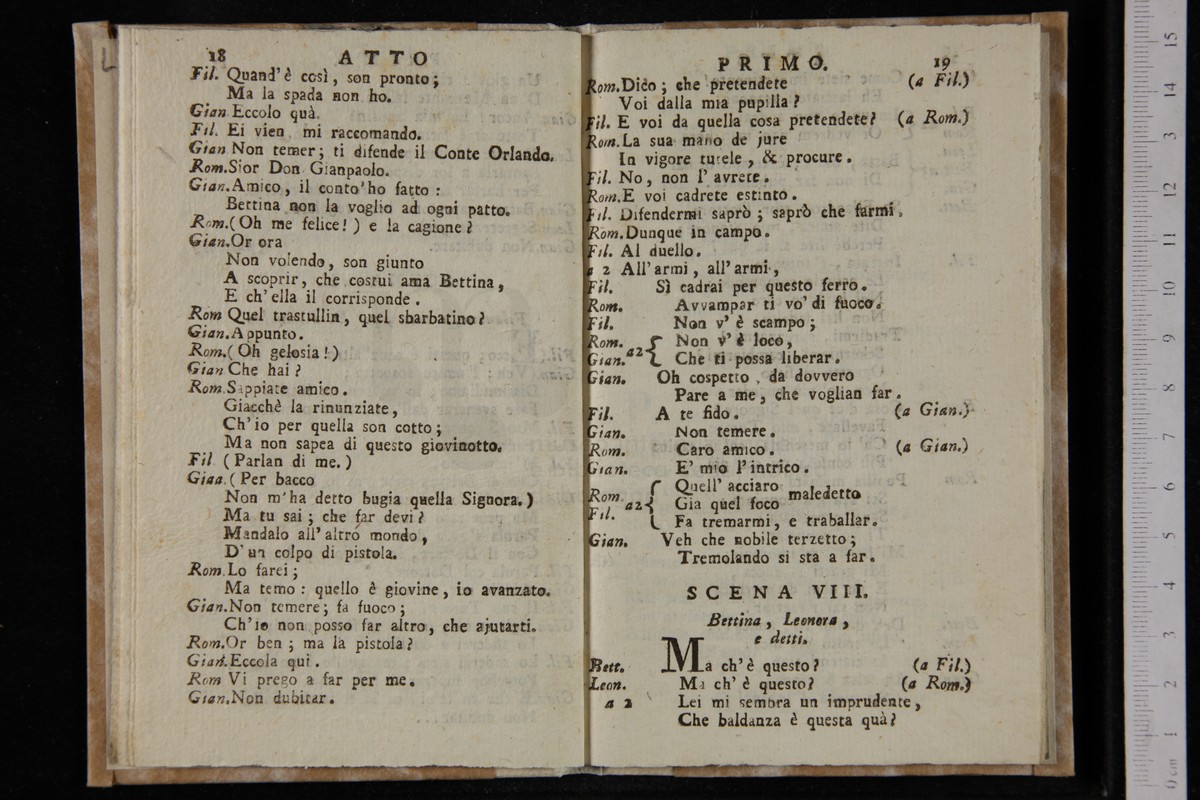 18 ATTO
Fil. Quand' è così, son pronto;
Ma la spada non ho.
Gian Eccolo quà.
Fil. Ei vien, mi raccomando.
Gian Non temer; ti difende il Conte Orlando.
Rom. Sior Don Gianpaolo.
Gian. Amico, il conto 'ho fatto :
Bettina non la voglio ad ogni patto.
Rom. ( Oh me felice! ) e la cagione ?
Gian. Or ora
Non volendo, son giunto
A scoprir, che costui ama Bettina,
E ch'ella il corrisponde.
Rom Quel trastullin, quel sbarbatino ?
Gian. Appunto.
Rom. ( Oh gelosia ! )
Gian Che hai ?
Rom. Sappiate amico.
Giacchè la rinunziate,
Ch'io per quella son cotto ;
Ma non sapea di questo giovinotto.
Fil ( Parlan di me. )
Giaa. ( Per bacco
Non m'ha detto bugia quella Signora. )
Ma tu sai ; che far devi ?
Mandalo all' altro mondo,
D' un colpo di pistola.
Rom. Lo farei ;
Ma temo : quello è giovine, io avanzato.
Gian. Non temere; fa fuoco ;
Ch'io non posso far altro, che ajutarti.
Rom. Or ben ; ma la pistola ?
Gian. Eccola qui.
Rom Vi prego a far per me.
Gian. Non dubitar.
PRIMO. 19
Rom. Dico ; che pretendete (a Fil.)
Voi dalla mia pupilla ?
Fil. E voi da quella cosa pretendete? (a Rom.)
Rom. La sua mano de jure
In vigore tutele, & procure.
Fil. No, non l' avrete.
Rom. E voi cadrete estinto.
Fil. Difendermi saprò ; saprò che farmi.
Rom. Dunque in campo.
Fil. Al duello.
a 2 All' armi, all' armi,
Fil. Sì cadrai per questo ferro.
Rom. Avvampar ti vo' di fuoco.
Fil. Non v' è scampo ;
Rom. Non v' è loco,
Gian. a2 Che ti possa liberar.
Gian. Oh cospetto, da dovvero
Pare a me, che voglian far.
Fil. A te fido. (a Gian.)
Gian. Non temere.
Rom. Caro amico. (a Gian.)
Gian. E' mio l' intrico.
Rom. Quell' acciaro
a2 Gia quel foco maledetto
Fil. Fa tremarmi, e traballar.
Gian. Veh che nobile terzetto ;
Tremolando si sta a far.
SCENA VIII.
Bettina, Leonora,
e detti.
Bett. Ma ch' è questo ? (a Fil.)
Leon. Ma ch' è questo? (a Rom.)
a 2 Lei mi sembra un imprudente,
Che baldanza è questa quà?